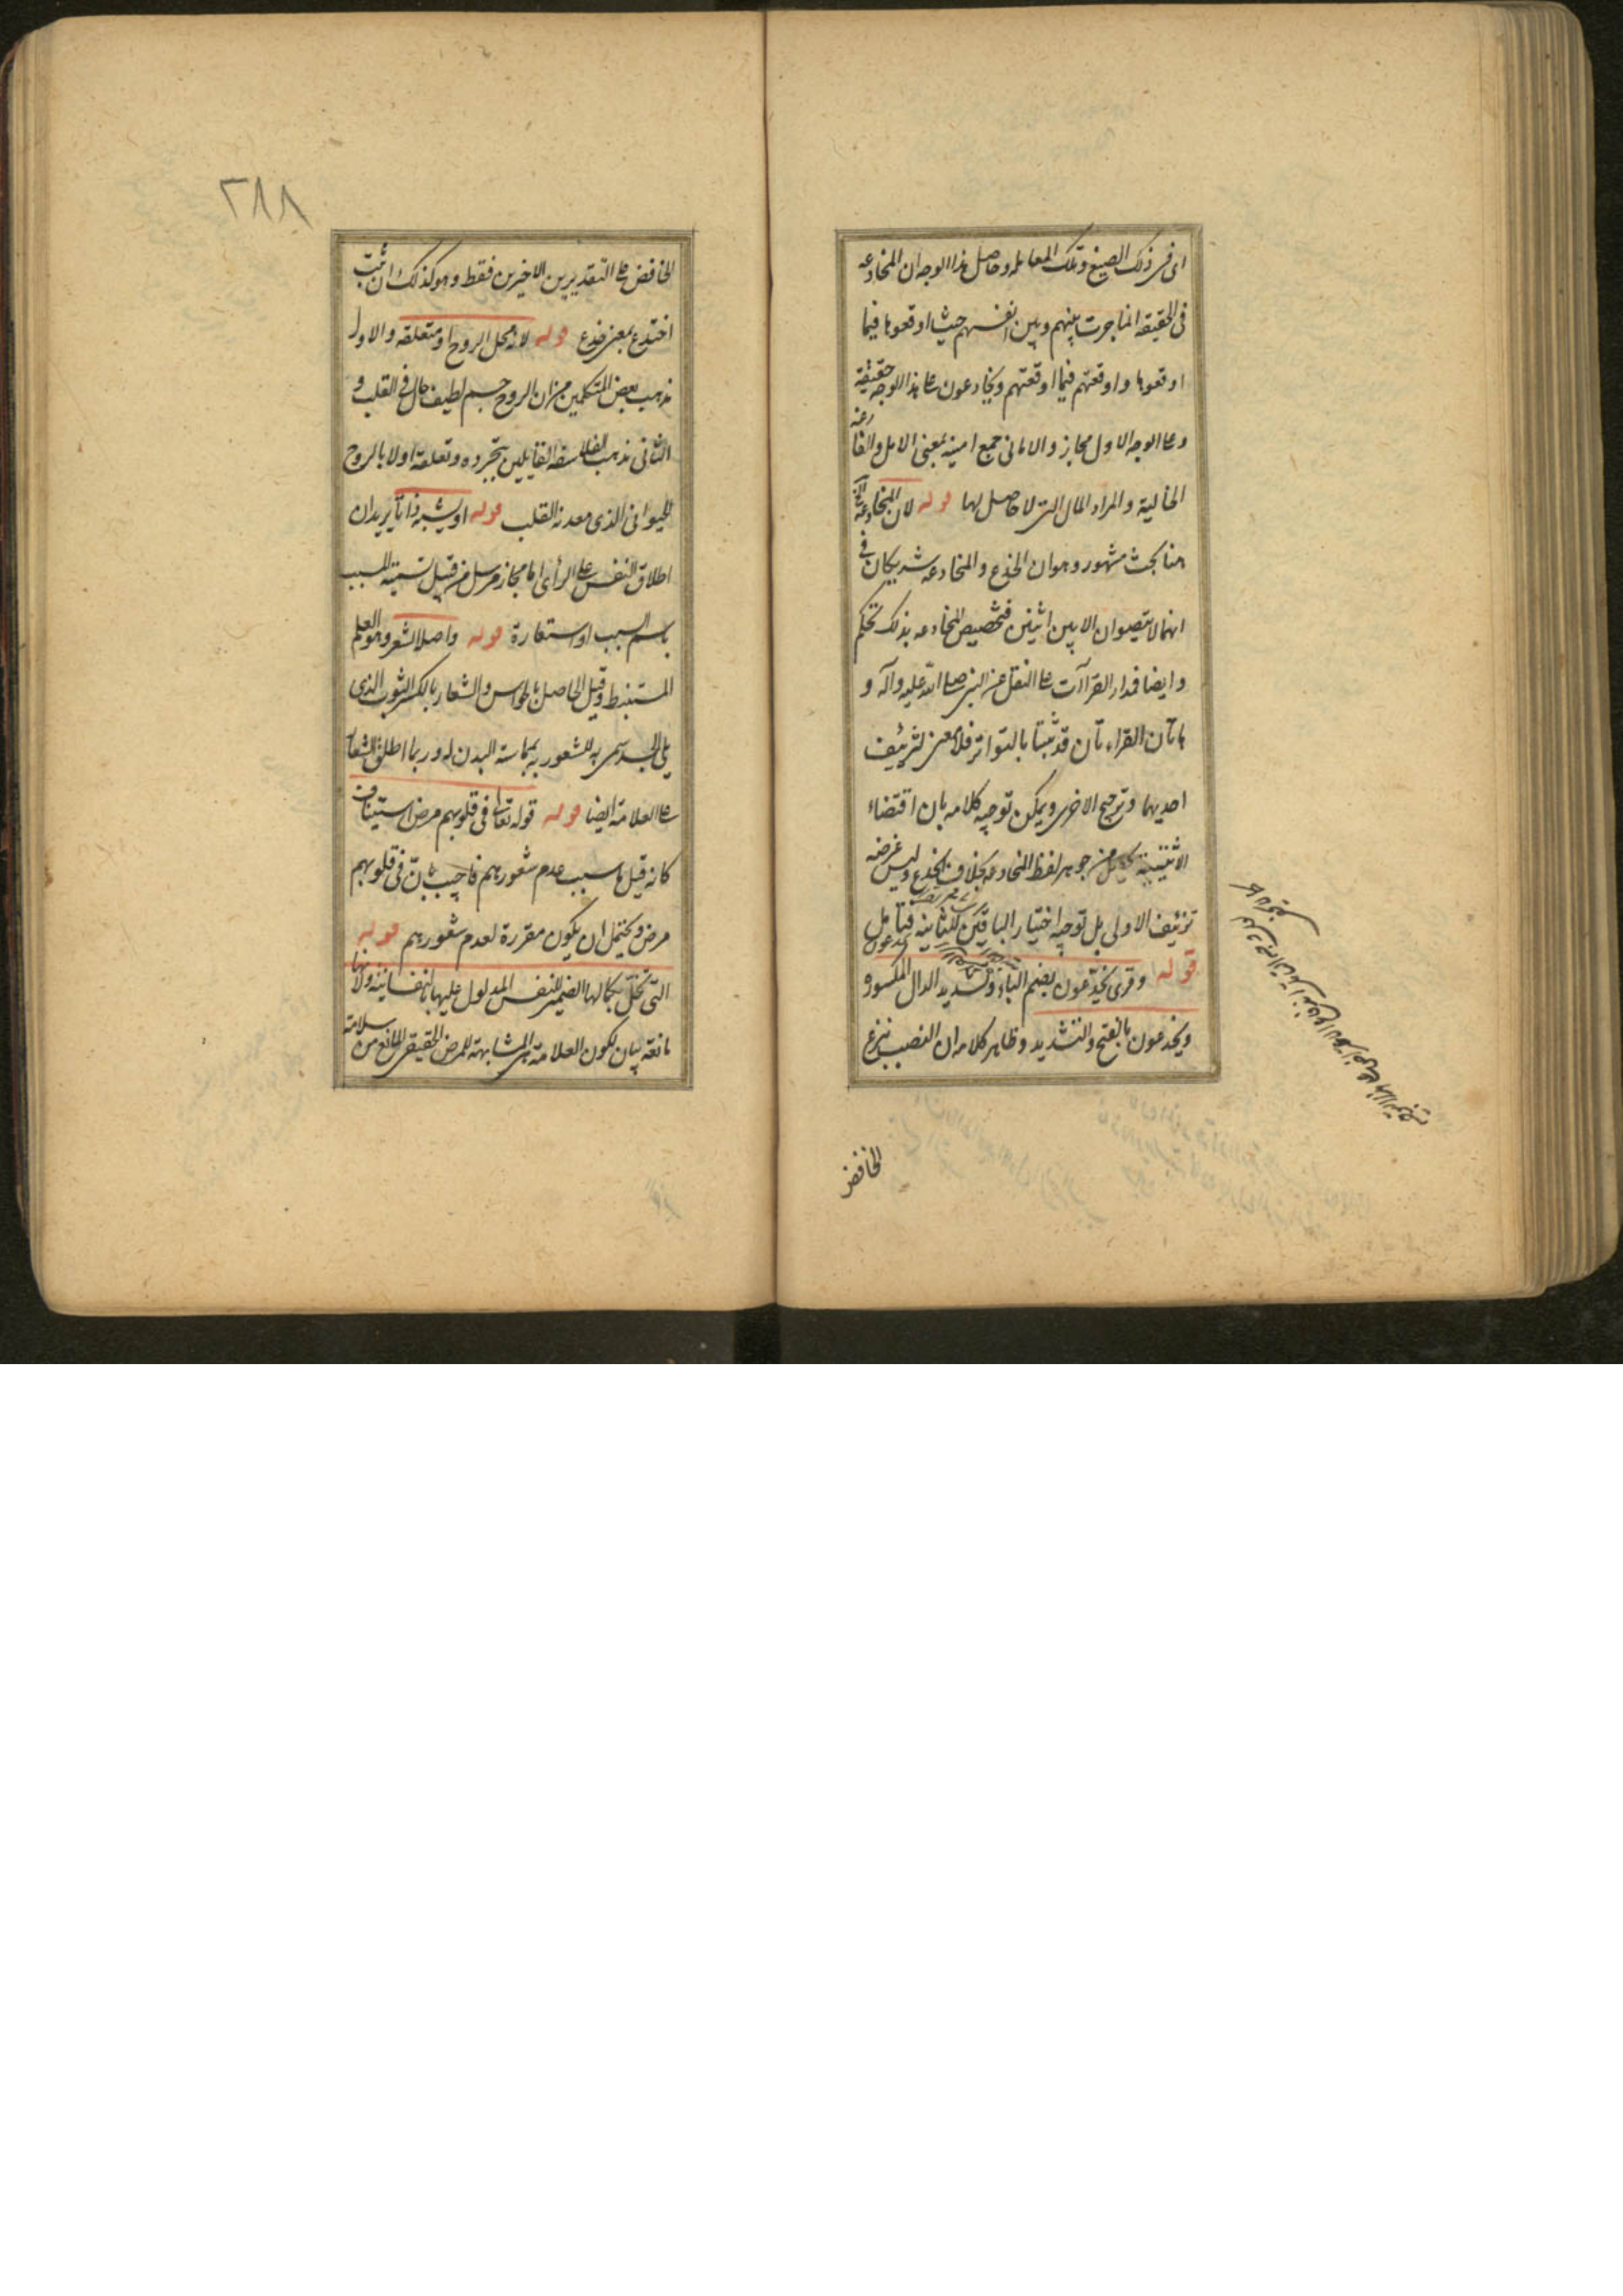 اى فى ذلك الصنيع وتلك المعاملة وحاصل هذا الوجه ان المخادعه
فى الحقيقه انما جرت بينهم وبين انفسهم حيث اوقعوها فيما
اوقعوها واوقعتهم فيما اوقعتهم ويخادعون على هذا الوجه حقيقة
وعلى الوجه الاول مجاز والامانى جمع امنية بمعنى الامل والفارغه
الخالية والمراد المال التى لا حاصل لها قوله لان المخادعة الخ
هنا بحث مشهور وهو ان الخدع والمخادعه شريكان فى
انهما لا يتصوران الا بين اثنين فتخصيص المخادعه بذلك تحكم
وايضا فمدار القراآت على النقل عن النبى صلى الله عليه وآله و
هاتان القراءتان قد ثبتا بالتواتر فلا معنى لتزئيف
احديهما وترجيح الاخرى ويمكن توجيه كلامه بان اقتضاء
الاثنينية يحصل من جوهر لفظ المخادعه بخلاف الخدع وليس غرضه
تزئيف الاولى بل توجيه اختيار الباقين للثانيه فتأمل
قوله وقرى يخدّعون بضم الياء وتشديد الدال المكسوره
ويخدعون بالفتح والتشديد وظاهر كلامه ان النصب بنزع
الخافض
٢٨٨
الخافض على التقديرين الاخيرين فقط وهو كذلك ان ثبت
اختدع بمعنى خدع قوله لانه محل الروح او متعلقه والاول
مذهب بعض المتكلمين من ان الروح جسم لطيف حال فى القلب و
الثانى مذهب الفلاسفه القايلين بتجرده وتعلقه اولا بالروح
الحيوانى الذى معدنه القلب قوله او يشبه ذاتا يريد ان
اطلاق النفس على الرأى اما مجاز مرسل من قبيل تسمية المسبب
باسم السبب او استعارة قوله واصل الشعر وهو العلم
المستنبط وقيل الحاصل بالحواس والشعار بالكسر الثوب الذى
يلى الجسد سمى به للشعور به بمماسته البدن له وربما اطلق الشعار
على العلامة ايضا قوله قوله تعالى فى قلوبهم مرض استيناف
كانه قيل ما سبب عدم شعورهم فاجيب بانّ فى قلوبهم
مرض ويحتمل ان يكون مقررة لعدم شعورهم قوله
التى تخلّ بكمالها الضمير للنفس المدلول عليها بالنفسانيه ولانها
مانعة بيان لكون العلامة هى المشابهة للمرض الحقيقى المانع من سلامة